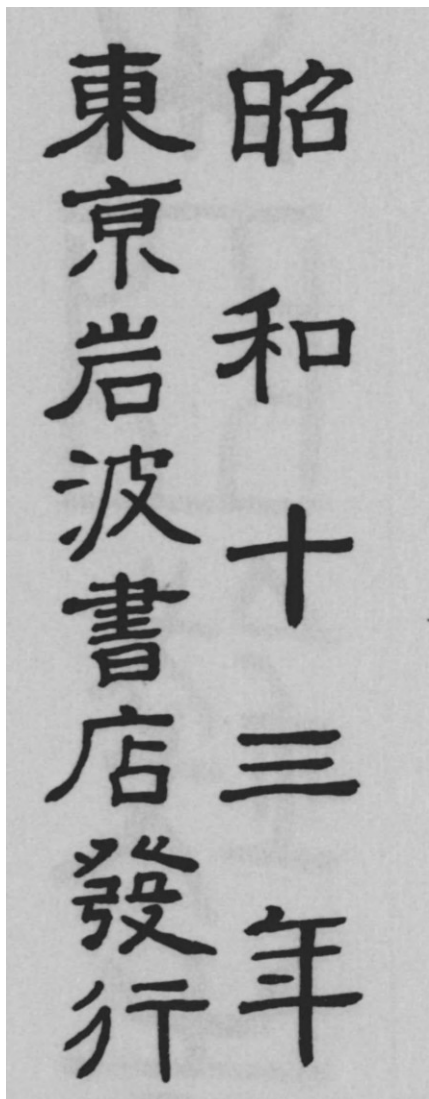 昭和十三年
東亰岩波書店發行